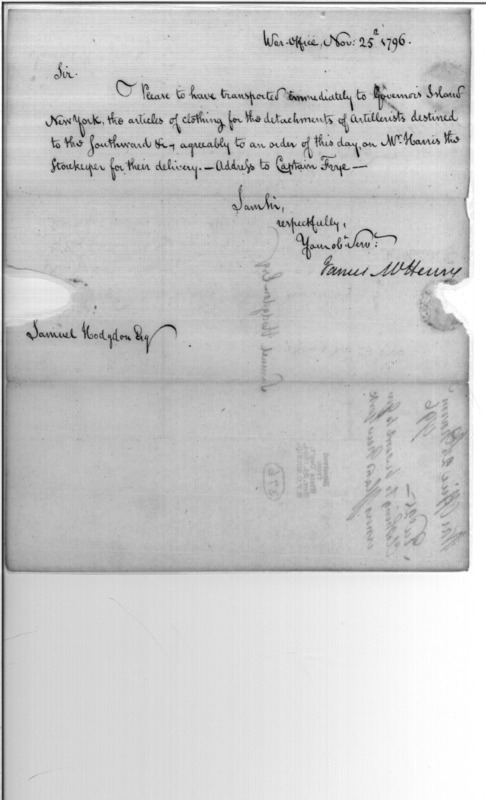 War-Office, Nov: 25th 1796.
Sir.
Please to have transported immediately to Governors Island
New York, the articles of clothing for the detachments of Artillerists destined
to the Southward &c, agreably to an order of this day, on Mr Harris the
Storekeeper for their delivery.— Address to Captain Frye —
I am Sir,
respectfully,
Your obt Servt
James McHenry
Samuel Hodgdon Esq